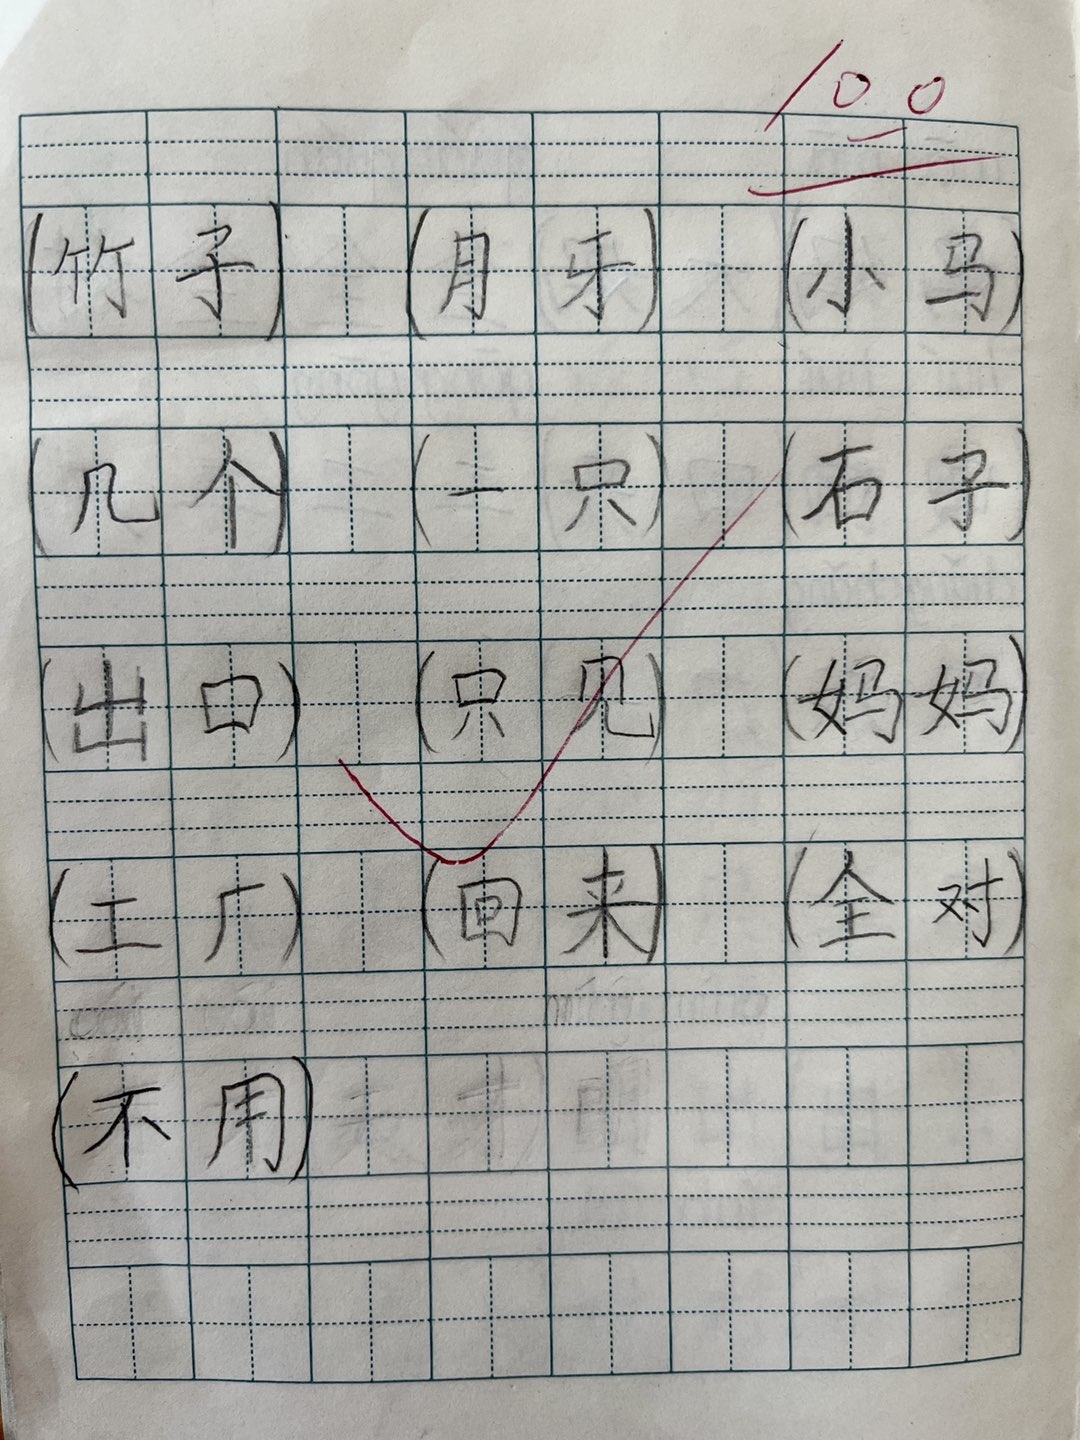 100
(竹子) (月牙) (小马)
(几个) (一只) (石子)
(出口) (只见) (妈妈)
(工厂) (回来) (全对)
(不用)